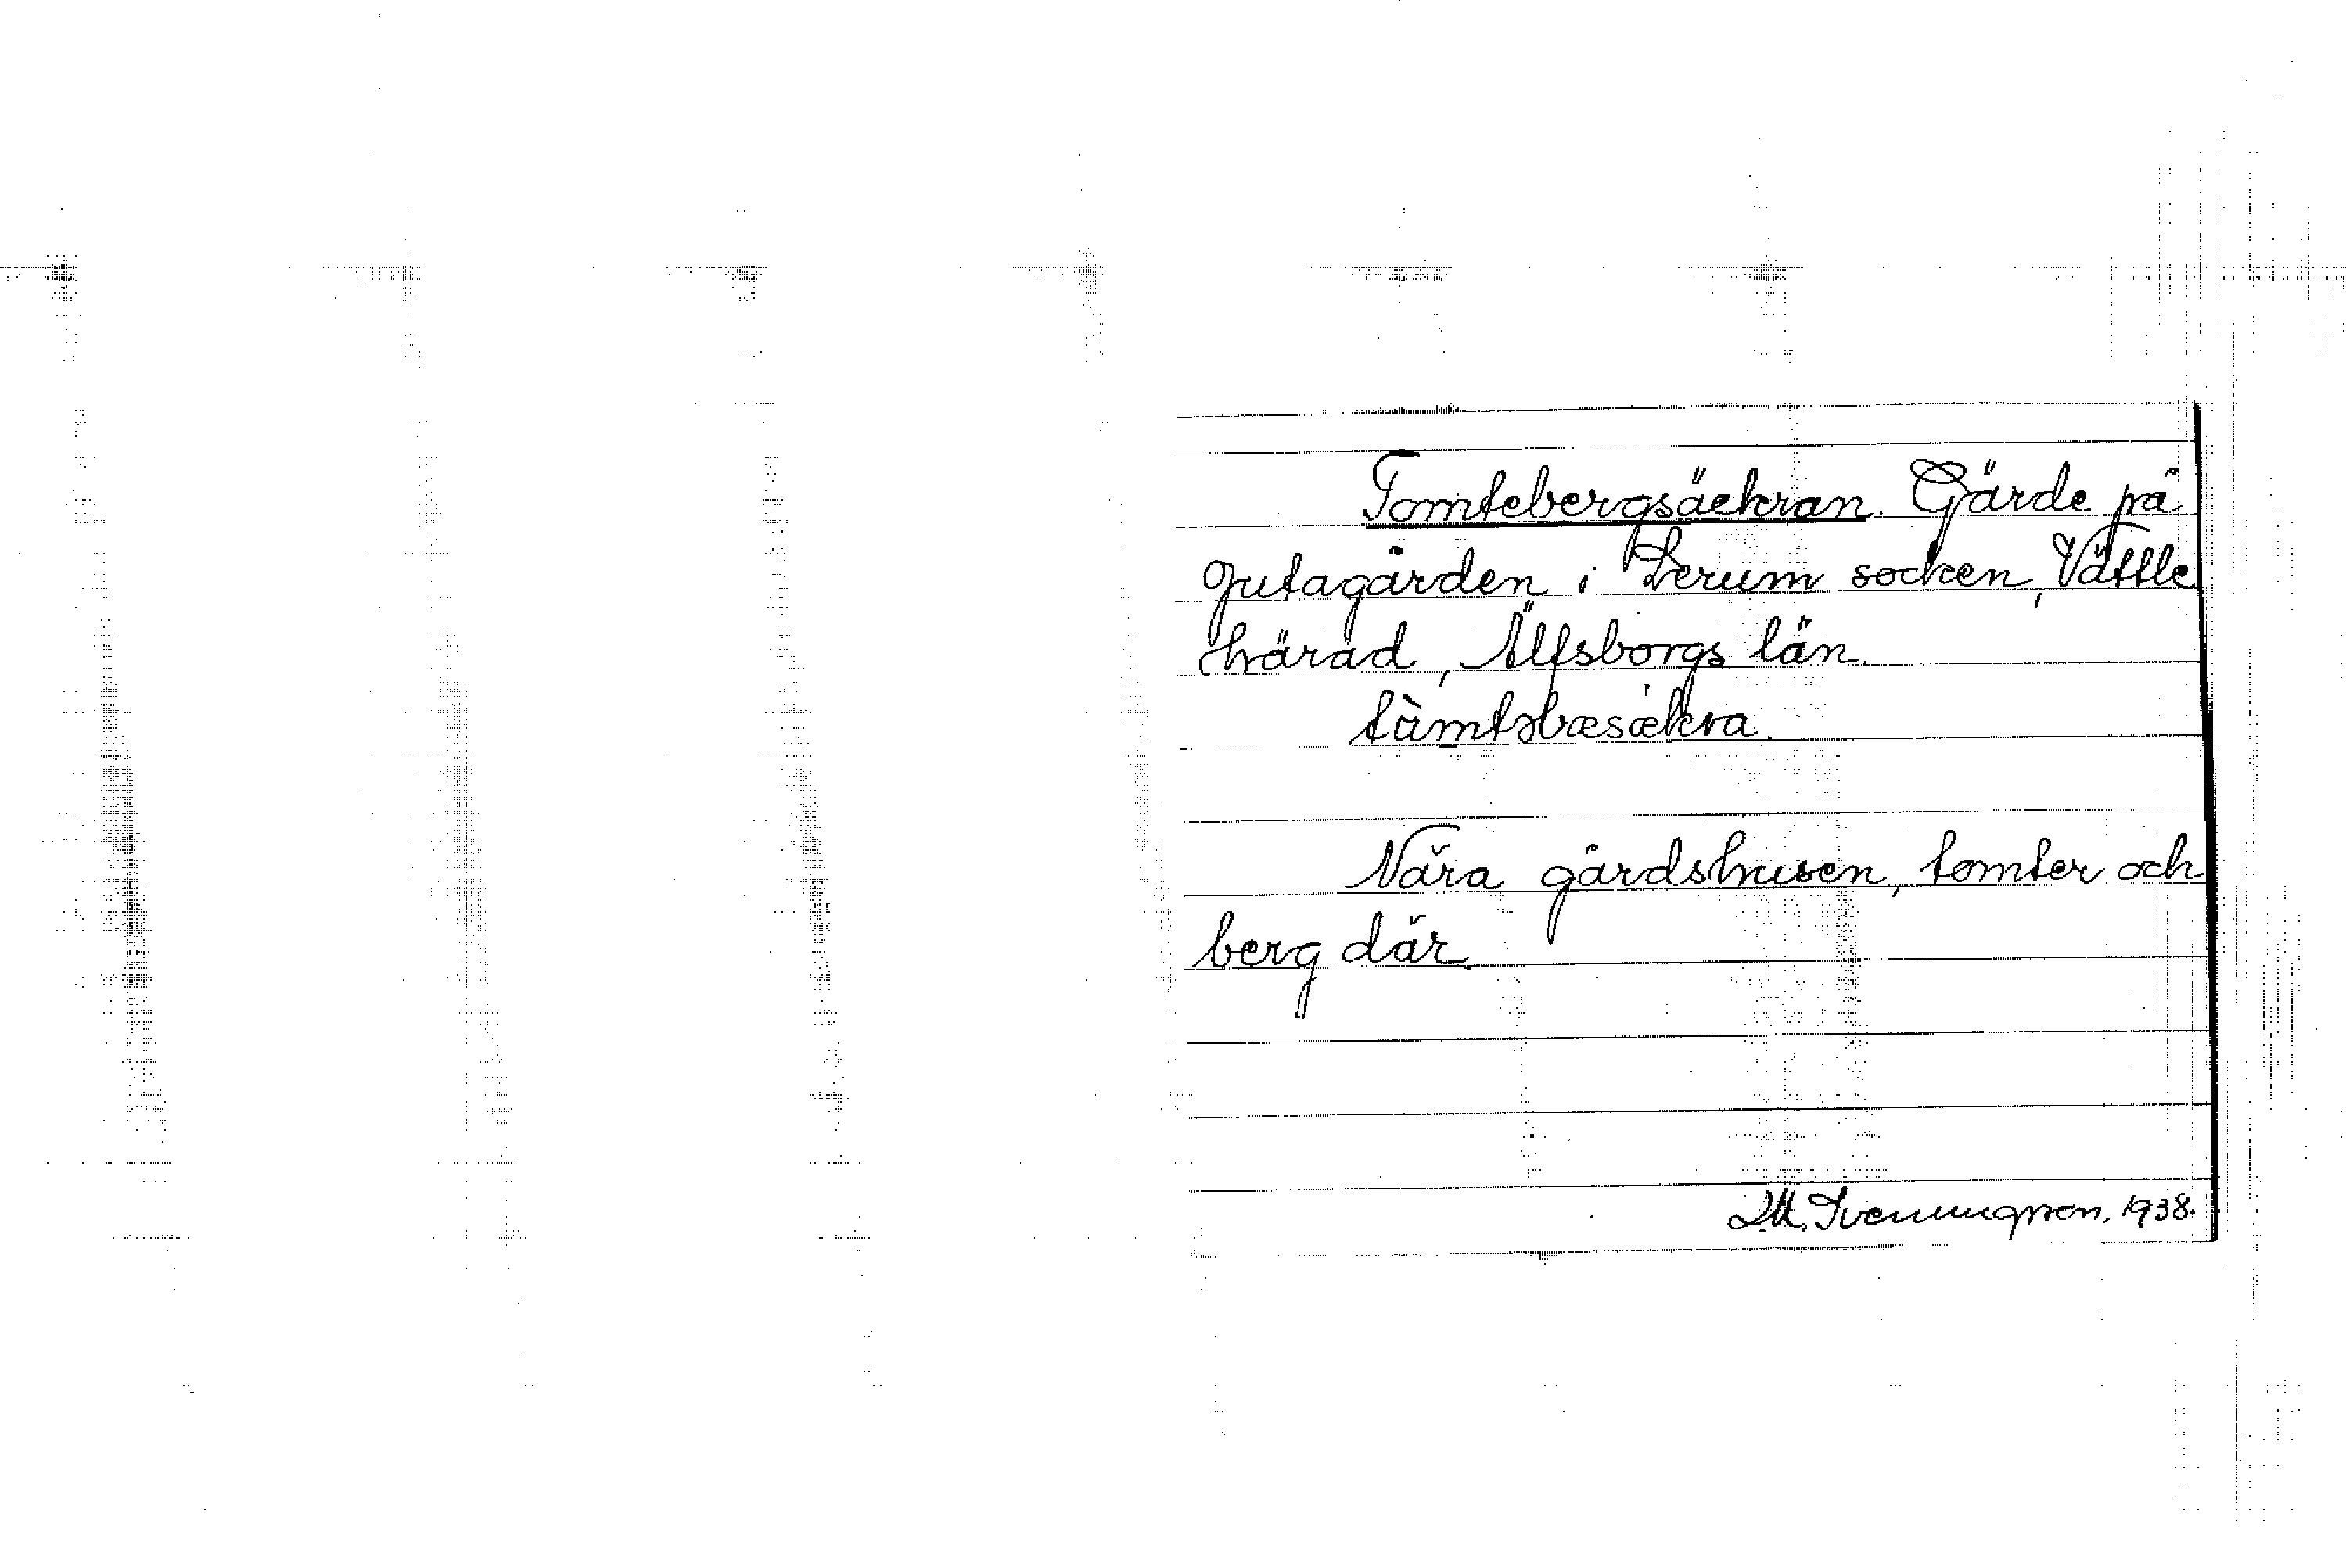 Tomtebergsäckran. Gärde på
Jutagården i Lerum socken, Vättle
härad, Älfsborgs län.
tùmtəbæsækra.
Nära gårdshusen, tomter och
berg där.
M. Svenungsson. 1938.